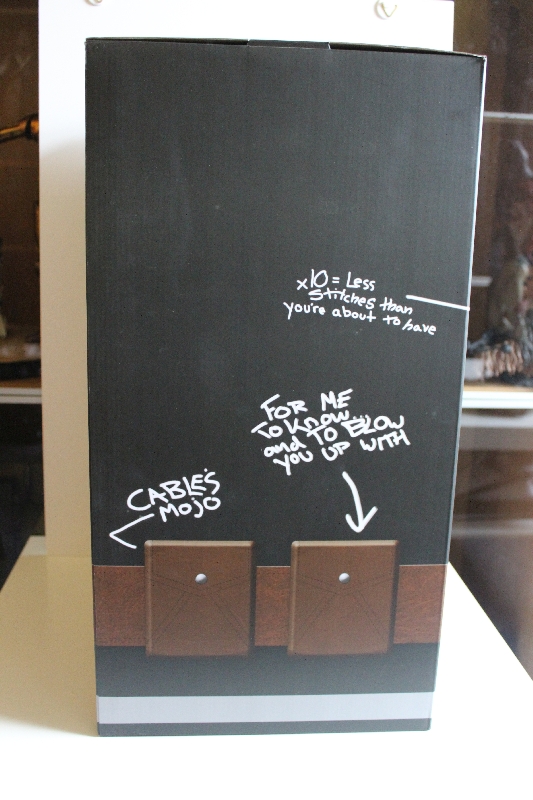 x10 = Less
Stitches than
you're about to have
FOR ME
To Know...
and TO BLOW
YOU UP WITH
CABLE'S
MOJO